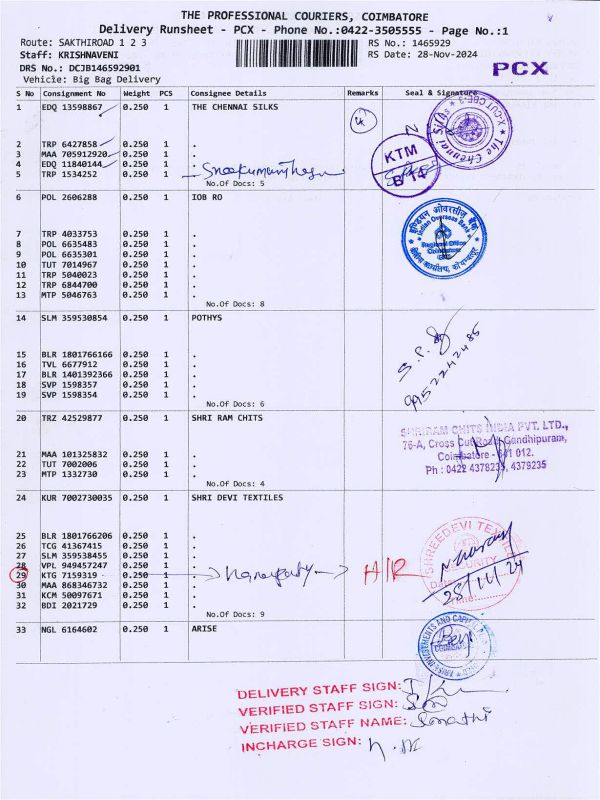 THE PROFESSIONAL COURIERS, COIMBATORE
Delivery Runsheet - PCX - Phone No.:0422-3505555 - Page No.:1
Route: SAKTHIROAD 1 2 3
RS No.: 1465929
Staff: KRISHNAVENI
RS Date: 28-Nov-2024
DRS No.: DCJB146592901
PCX
Vehicle: Big Bag Delivery
S No Consignment No Weight PCS Consignee Details Remarks Seal & Signature
1 EDQ 13598867 0.250 1 THE CHENNAI SILKS
2 TRP 6427858 0.250 1 .
3 MAA 705912920 0.250 1 .
4 EDQ 11840144 0.250 1 .
5 TRP 1534252 0.250 1 .
No.Of Docs: 5
The Chennai Silks
KTM
B 14
6 POL 2606288 0.250 1 IOB RO
7 TRP 4033753 0.250 1 .
8 POL 6635483 0.250 1 .
9 POL 6635301 0.250 1 .
10 TUT 7014967 0.250 1 .
11 TRP 5040023 0.250 1 .
12 TRP 6844700 0.250 1 .
13 MTP 5046763 0.250 1 .
No.Of Docs: 8
इण्डियन ओवरसीज बैंक
Indian Overseas Bank
Regional Office
Coimbatore
14 SLM 359530854 0.250 1 POTHYS
15 BLR 1801766166 0.250 1 .
16 TVL 6677912 0.250 1 .
17 BLR 1401392366 0.250 1 .
18 SVP 1598357 0.250 1 .
19 SVP 1598354 0.250 1 .
No.Of Docs: 6
9952242485
20 TRZ 42529877 0.250 1 SHRI RAM CHITS
21 MAA 101325832 0.250 1 .
22 TUT 7002006 0.250 1 .
23 MTP 1332730 0.250 1 .
No.Of Docs: 4
SHRIRAM CHITS INDIA PVT. LTD.,
76-A, Cross Cut Road, Gandhipuram,
Coimbatore - 641 012.
Ph : 0422 4378235, 4379235
24 KUR 7002730035 0.250 1 SHRI DEVI TEXTILES
25 BLR 1801766206 0.250 1 .
26 TCG 41367415 0.250 1 .
27 SLM 359538455 0.250 1 .
28 VPL 949457247 0.250 1 .
29 KTG 7159319 0.250 1 . H/R
30 MAA 868346732 0.250 1 .
31 KCM 50097671 0.250 1 .
32 BDI 2021729 0.250 1 .
No.Of Docs: 9
SHREEDEVI TEXTILE
SECURITY
28/11/24
33 NGL 6164602 0.250 1 ARISE
ARISE INVESTMENTS AND CAPITAL
DELIVERY STAFF SIGN:
VERIFIED STAFF SIGN:
VERIFIED STAFF NAME: Sumathi
INCHARGE SIGN: